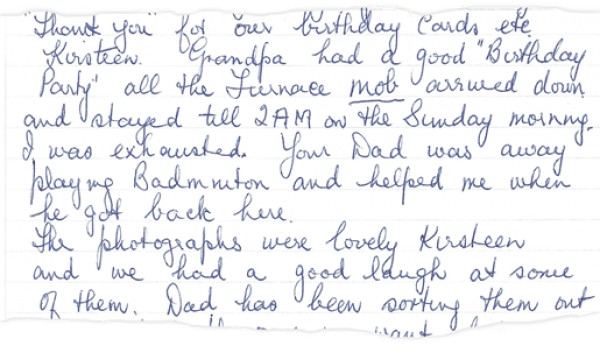 "Thank you" for our birthday Cards etc
Kirsteen. Grandpa had a good "Birthday
Party" all the Furnace mob arrived down
and stayed till 2AM on the Sunday morning.
I was exhausted. Your Dad was away
playing Badminton and helped me when
he got back here.
The photographs were lovely Kirsteen
and we had a good laugh at some
of them. Dad has been sorting them out
want